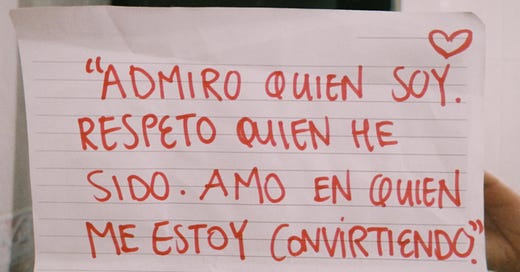 "ADMIRO QUIEN SOY.
RESPETO QUIEN HE
SIDO. AMO EN QUIEN
ME ESTOY CONVIRTIENDO."